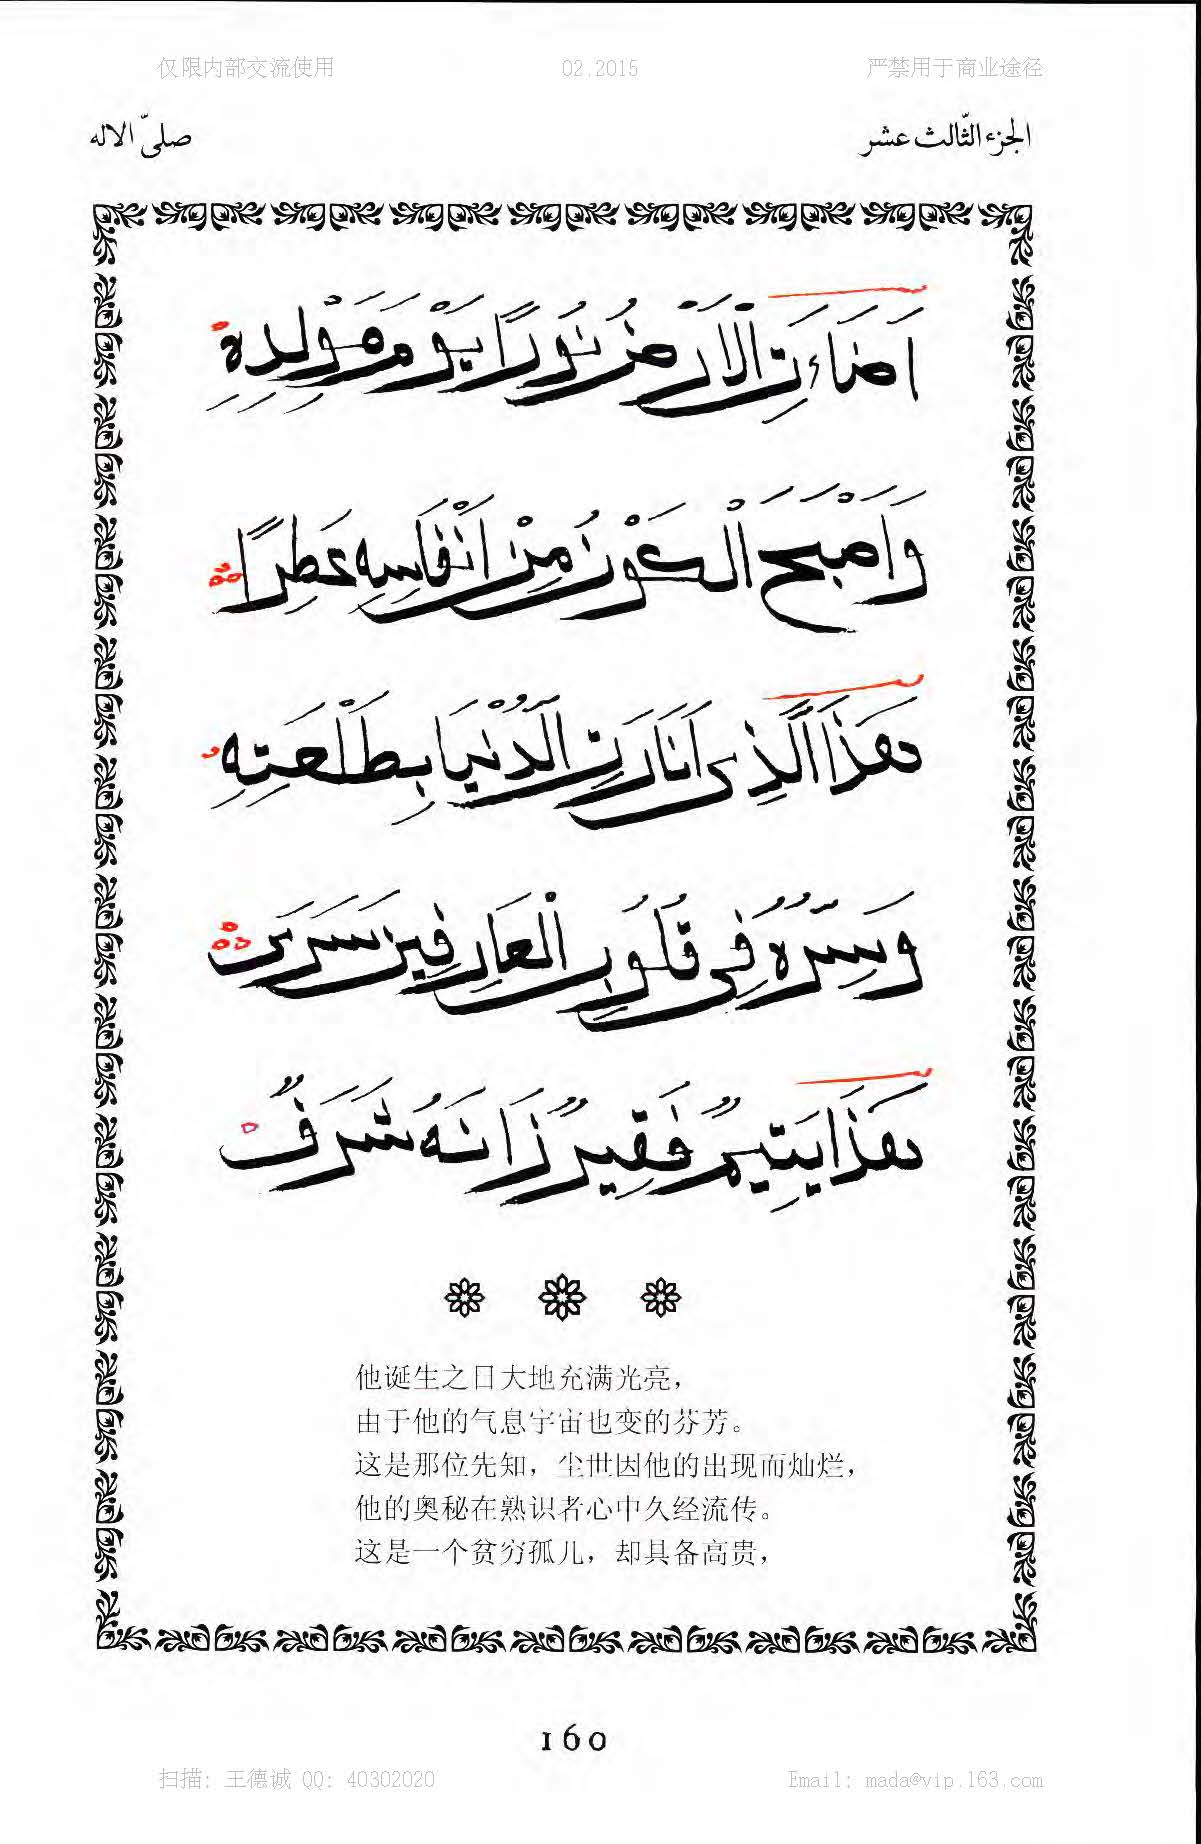 仅限内部交流使用 02.2015 严禁用于商业途径
الجزء الثّالث عشر صلىّ الاله
اَضَاءَتِ الْاَرْضُ نُورًا يَوْمَ مَوْلِدِهِ
وَاَصْبَحَ الْكَوْنُ مِنْ اَنْفَاسِهِ عَطِرًا
هَذَا الَّذِى اَنَارَتِ الدُّنْيَا بِطَلْعَتِهِ
وَسِرُّهُ فِى قُلُوبِ الْعَارِفِينَ سَرَتْ
هَذَا يَتِيمٌ فَقِيرٌ زَانَهُ شَرَفٌ
他诞生之日大地充满光亮，
由于他的气息宇宙也变的芬芳。
这是那位先知，尘世因他的出现而灿烂，
他的奥秘在熟识者心中久经流传。
这是一个贫穷孤儿，却具备高贵，
160
扫描: 王德诚 QQ: 40302020 Email: mada@vip.163.com